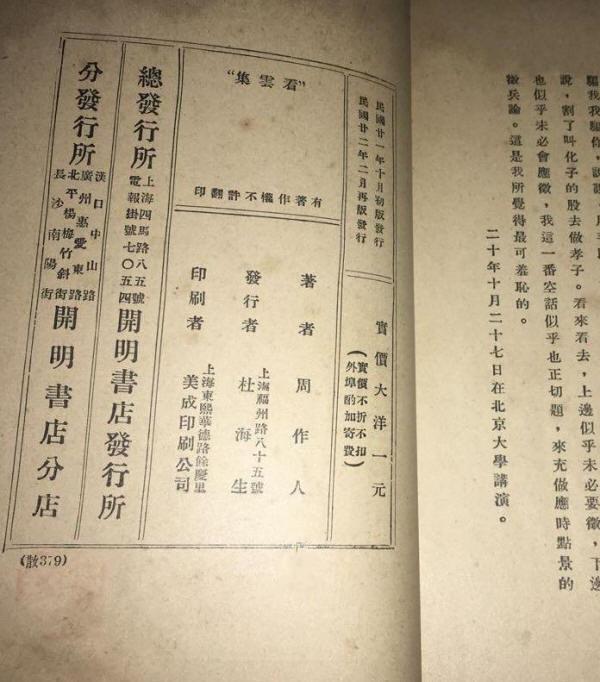 騙我我騙你，說
說，割了叫化子的股去做孝子。看來看去，上邊似乎未必要徵，下邊
也似乎未必會應徵，我這一番空話似乎也正切題，來充做應時點景的
徵兵論。這是我所覺得最可羞恥的。
二十年十月二十七日在北京大學講演。
民國廿一年十月初版發行
民國廿二年二月再版發行
實價大洋一元
(實價不折不扣
外埠酌加寄費)
“看雲集”
有著作權不許翻印
著者 周作人
發行者 上海福州路八十五號
杜海生
印刷者 上海東熙華德路餘慶里
美成印刷公司
總發行所 上海四馬路八五號
電報掛號七〇五四
開明書店發行所
分發行所 漢口中山路
廣州惠愛東路
北平楊梅竹斜街
長沙南陽街
開明書店分店
(散379)